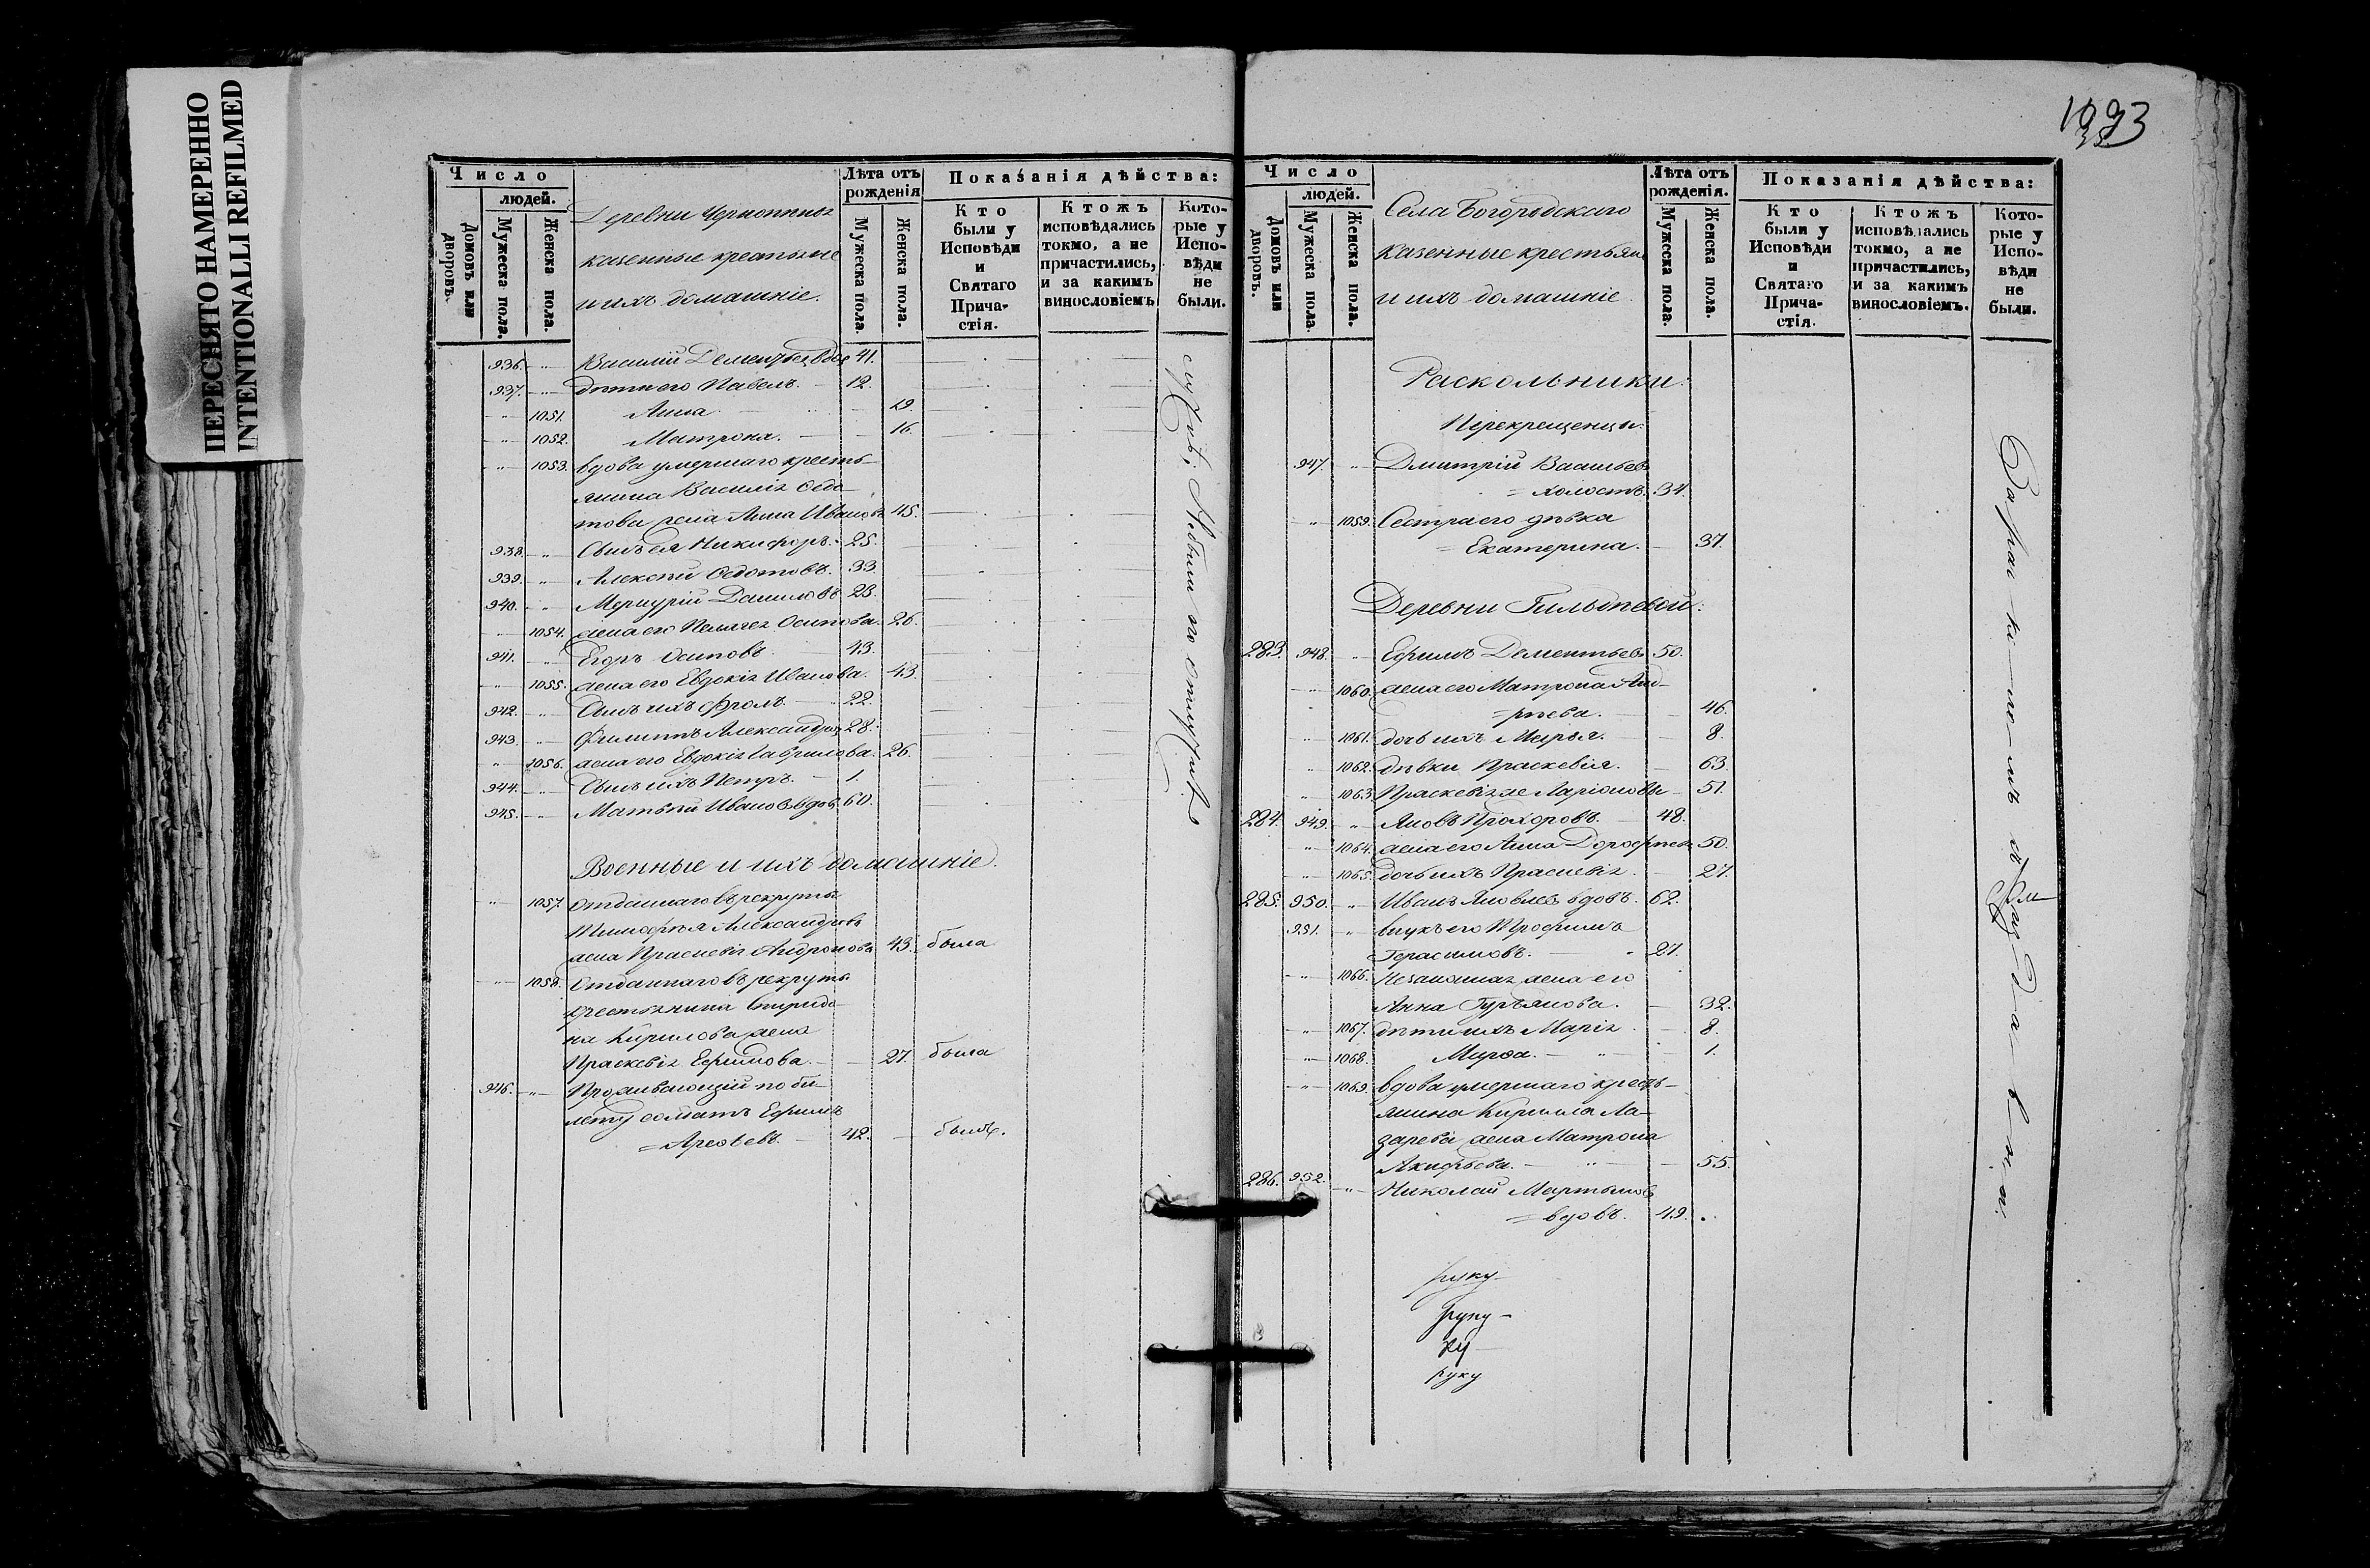 ПЕРЕСНЯТО НАМЕРЕННО
INTENTIONALLI REFILMED
Число
людей.
Домовъ или дворовъ.
Мужеска пола.
Женска пола.
Деревни
казенные крестьяне
и ихъ домашніе.
Лѣта отъ рожденія
Мужеска пола.
Женска пола.
Показанія дѣйства:
Кто были у Исповѣди и Святаго Прича-стія.
Ктожъ исповѣдались токмо, а не причастились, и за какимъ винословіемъ
Кото-рые у Испо-вѣди не были.
936. „ Василій Дементьевъ вдовъ 41.
937. „ дѣти его Павелъ. 12.
„ 1051. Анна 19.
„ 1052. Матрона. 16.
„ 1053. вдова умершаго кресть-
янина Василія Ѳедо-
това жена Анна Иванова 45.
938. „ Сынъ ея Никифоръ. 25.
939. „ Алексѣй Ѳедотовъ. 33.
940. „ Меркурій Даниловъ 28.
„ 1054. жена его Пелагея Осипова. 26.
941. „ Егоръ Осиповъ 43.
„ 1055. жена его Евдокія Иванова. 43
942. „ Сынъ ихъ Фролъ. 22.
943. „ Филиппъ Александровъ 28.
„ 1056. жена его Евдокія Гаврилова. 26.
944. „ Сынъ ихъ Петръ. 1.
945. „ Матвѣй Ивановъ вдовъ 60.
Военные и ихъ домашніе.
„ 1057. Отданнаго въ рекруты
Тимоѳея Александрова
жена Праскевія Андронова 43. была
„ 1058. Отданнаго въ рекруты
крестьянина Спиридо-
на Кирилова жена
Праскевія Ефимова. 27. была
946. „ Проживающій по би-
лету солдатъ Ефимъ
= 42. былъ.
1993
Число
людей.
Домовъ или дворовъ.
Мужеска пола.
Женска пола.
Села Богородскаго
казенные крестьяне
и ихъ домашніе.
Лѣта отъ рожденія.
Мужеска пола.
Женска пола.
Показанія дѣйства:
Кто были у Исповѣди и Святаго Прича-стія.
Ктожъ исповѣдались токмо, а не причастились, и за какимъ винословіемъ.
Кото-рые у Испо-вѣди не были.
Раскольники:
Перекрещенцы.
947. „ Дмитрій Васильевъ
= холостъ. 34.
„ 1059. Сестра его дѣвка
= Екатерина. 37.
Деревни
283. 948. „ Ефимъ Дементьевъ 50.
„ 1060. жена его Матрона Анд-
= рѣева. 46.
„ 1061. дочь ихъ Марья. 8.
„ 1062. дѣвки Праскевія. 63.
„ 1063. Праскевія же Ларіоновы 51.
284. 949. „ Яковъ Прохоровъ. 48.
„ 1064. жена его Анна Дорофѣева 50.
„ 1065. дочь ихъ Праскевія. 27.
285. 950. „ Иванъ Яковлевъ вдовъ. 62.
951. „ внукъ его Трофимъ
Герасимовъ. 27.
„ 1066. Незаконная жена его
Анна Гурьянова. 32.
„ 1067. дѣти ихъ Марія 8.
„ 1068. Марѳа. 1.
„ 1069. вдова умершаго кресть-
янина Кирилла Ла-
зарева жена Матрона
Акифьева. 55.
286. 952. „ Николай Мартыновъ
= вдовъ. 49.
руку
руку